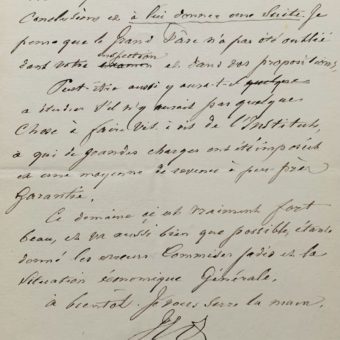 Conclusions et à lui donner une suite. Je
pense que le Grand Parc n'a pas été oublié
inspection
dans votre examen et dans vos propositions,
Peut-être aussi y aurait-il quelque
à étudier s'il n'y aurait pas quelque
Chose à faire vis à vis de l'Institut,
à qui de grandes charges ont été imposées
et une moyenne de revenu à peu près
Garantie.
Ce domaine est vraiment fort
beau, et va aussi bien que possible, étant
donné les erreurs Commises jadis et la
Situation économique Générale.
à bientôt. Je vous serre la main.